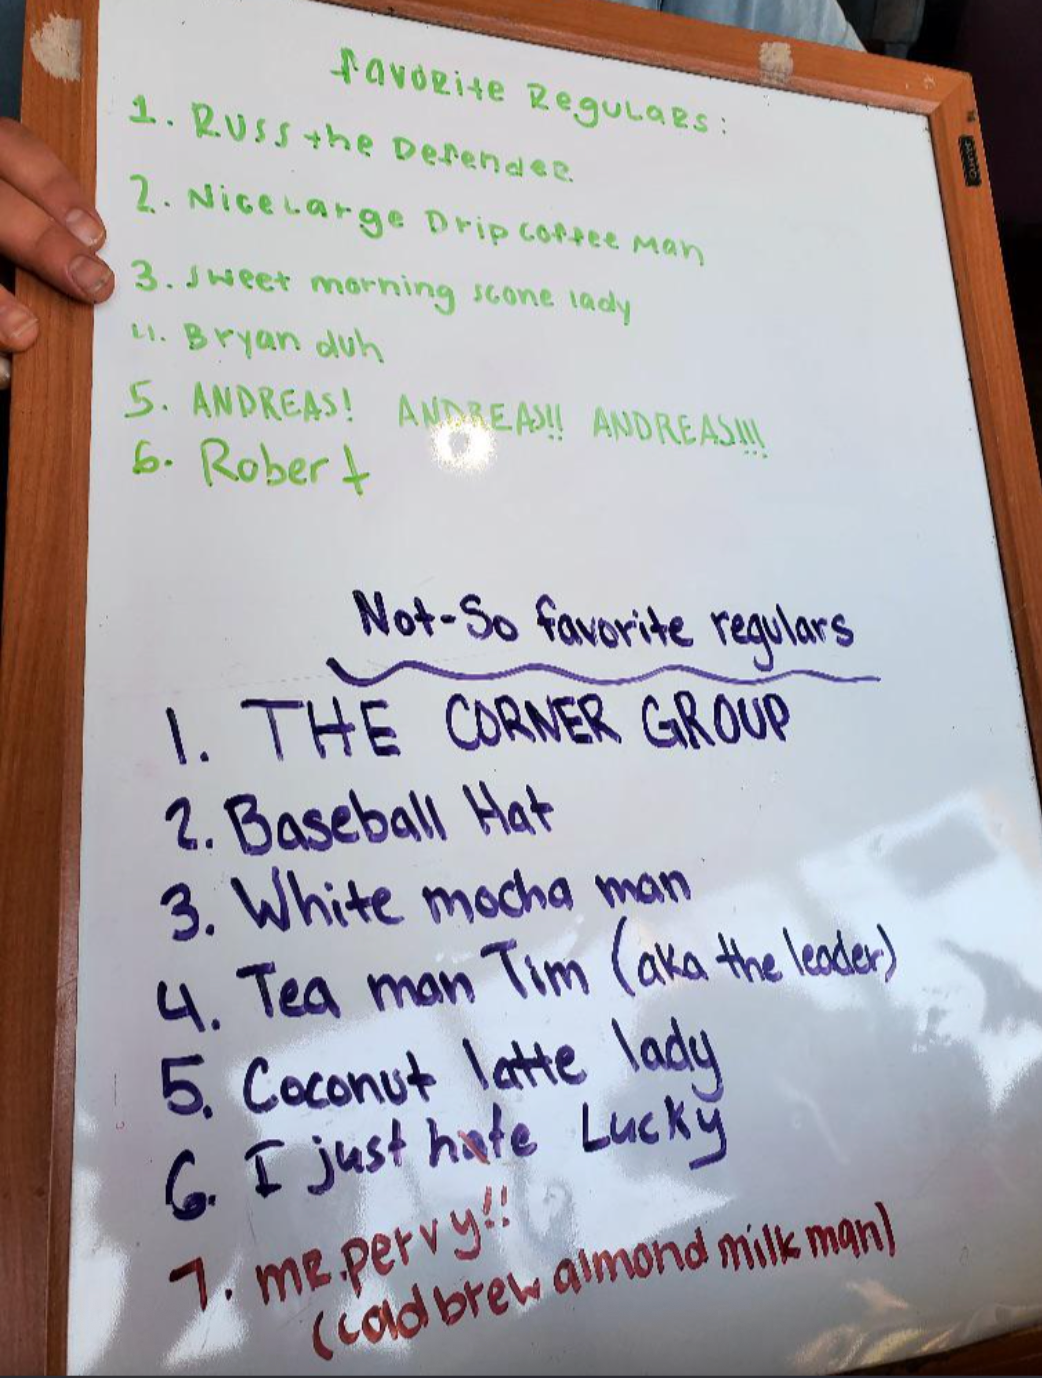 favorite Regulars:
1. Russ the Defender
2. Nice Large Drip coffee Man
3. sweet morning scone lady
4. Bryan duh
5. ANDREAS! ANDREAS!! ANDREAS!!!
6. Robert
Not-So favorite regulars
1. THE CORNER GROUP
2. Baseball Hat
3. White mocha man
4. Tea man Tim (aka the leader)
5. Coconut latte lady
6. I just hate Lucky
7. mr. pervy!!
(cold brew almond milk man)